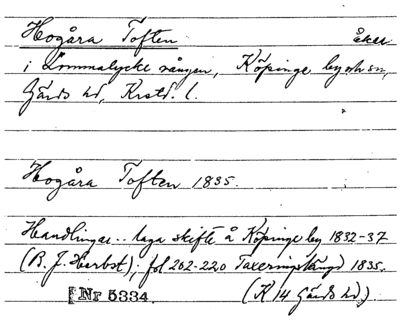 Hogåra Toften åker
i Lommalycke vången, Köpinge by och sn,
Gärds hd, Krstd. l.
Hogåra Toften 1835.
Handlingar .. laga skifte å Köpinge by 1832-37
(B. J. Herbst); fol 202-220 Taxeringslängd 1835.
Nr 5334. (K 14 Gärds hd.)